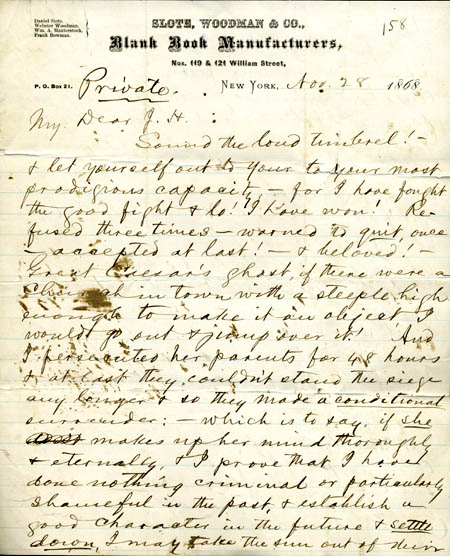 158
Daniel Slote.
Webster Woodman.
Wm. A. Manterstock.
Frank Bowman.
SLOTE, WOODMAN & CO.,
Blank Book Manufacturers,
Nos. 119 & 121 William Street,
P. O. Box 21.
NEW YORK, Nov. 28 1868
Private.
My Dear J. H. :
Sound the loud timbrel! —
& let yourself out to your to your most
prodigious capacity, — for I have fought
the good fight & lo! I have won! Re-
fused three times — warned to quit, once
— accepted at last! — & beloved! —
Great Caesar's ghost, if there were a
church in town with a steeple high
enough to make it an object I
would go out & jump over it! And
I persecuted her parents for 48 hours
& at last they couldn't stand the siege
any longer & so they made a conditional
surrender: — which is to say, if she
makes up her mind thoroughly
& eternally, & I prove that I have
done nothing criminal or particularly
shameful in the past, & establish a
good character in the future & settle
down, I may take the sun out of their